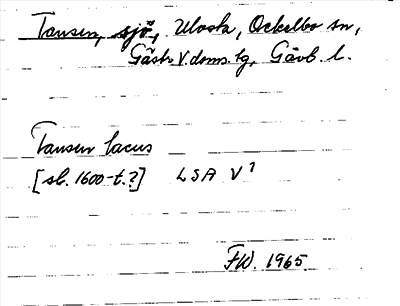 Tansen, sjö, Ulvsta, Ockelbo sn,
Gästr. V. doms. tg, Gävl. l.
Tansen lacus
[sl. 1600-t.?] LSA V?
FW. 1965